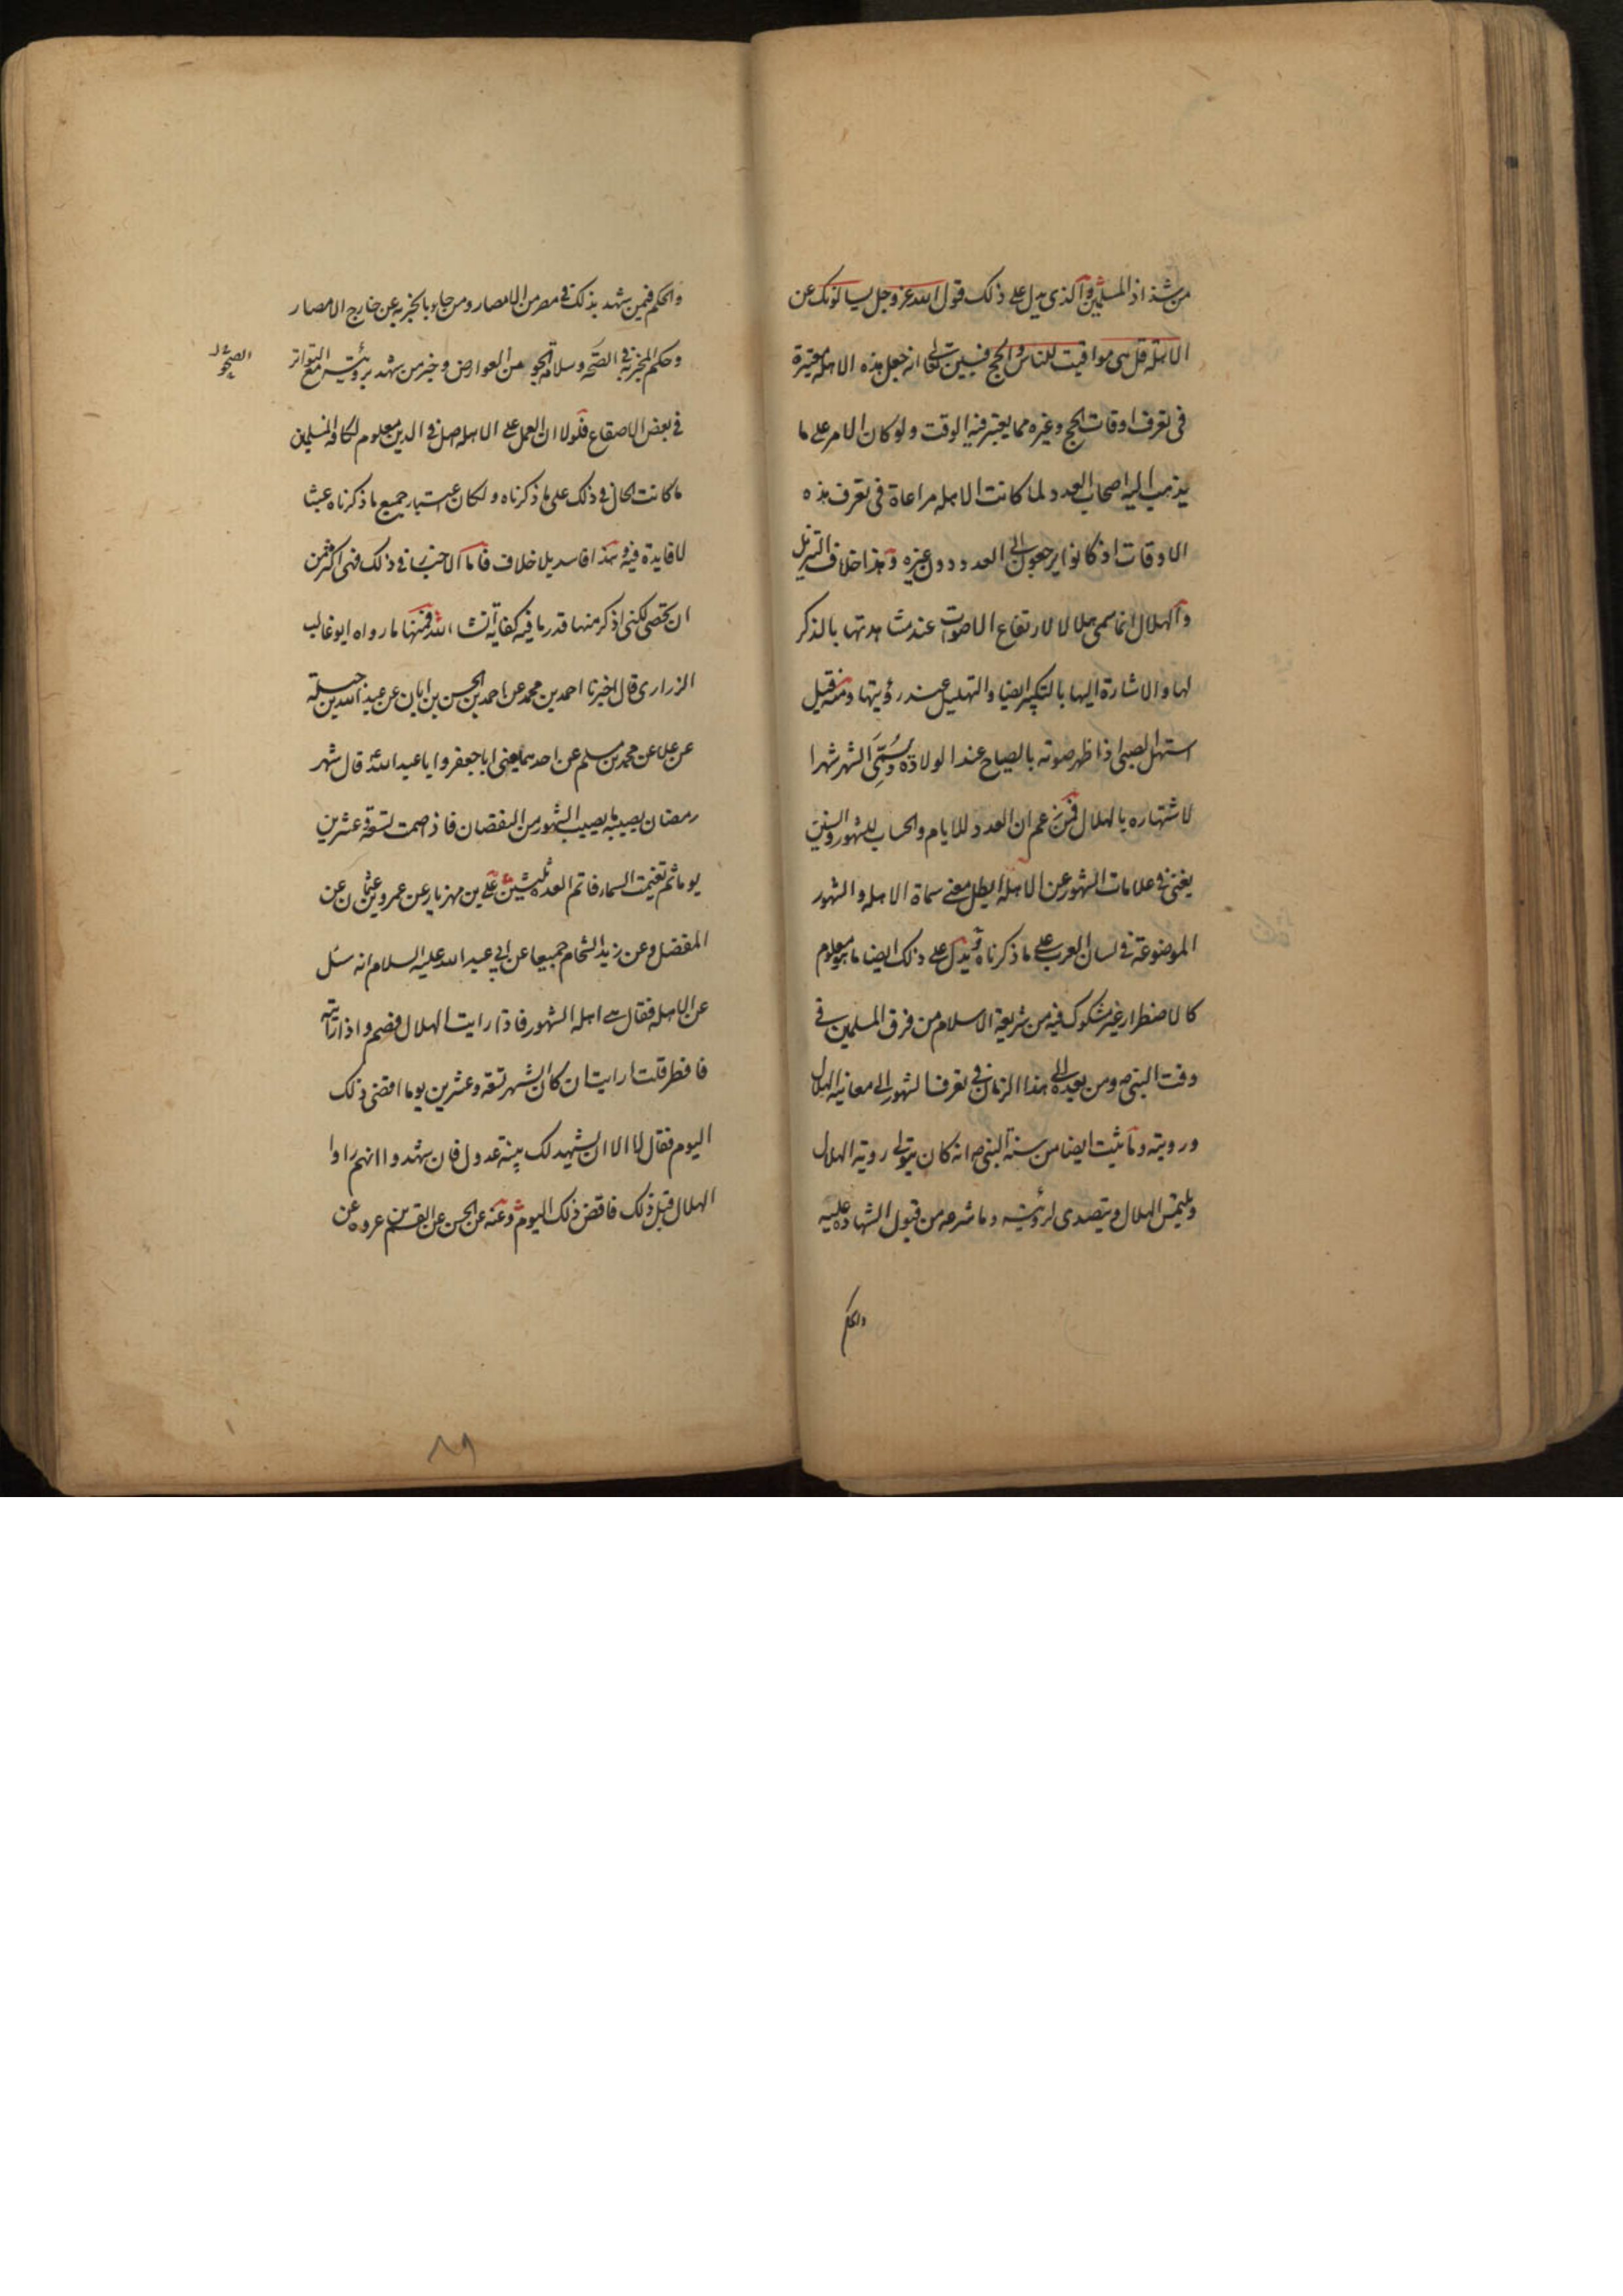 من شذاذ المسلمين والذي يدل على ذلك قول الله عز وجل يسالونك عن
الاهلة قل هي مواقيت للناس والحج فبين تعالى انه جعل هذه الاهله معتبرة
في تعرف اوقات الحج وغيره مما يعتبر فيه الوقت ولو كان الامر على ما
يذهب اليه اصحاب العدد لما كانت الاهله مراعاة في تعرف هذه
الاوقات اذ كانوا يرجعون الى العدد دون غيره وهذا خلاف التنزيل
والهلال انما سمي هلالا لارتفاع الاصوات عند مشاهدتها بالذكر
لها والاشارة اليها بالتكبير ايضا والتهليل عند رؤيتها ومنه قيل
استهل الصبي اذا ظهر صوته بالصياح عند الولادة وسُمّيَ الشهر شهرا
لاشتهاره بالهلال فمن زعم ان العدد للايام والحساب للشهور والسنين
يغني في علامات الشهور عن الاهله ابطل معنى سماة الاهله والشهور
الموضوعة في لسان العرب على ما ذكرناه ويدل على ذلك ايضا ما هو معلوم
كالاضطرار غير مشكوك فيه من شريعة الاسلام من فرق المسلمين في
وقت النبي ص ومن بعده الى هذا الزمان في تعرف الشهور الى معاينة الهلال
ورويته وما ثبت ايضا من سنة النبي ص انه كان يتولى روية الهلال
ويلتمس الهلال ويتصدى لرؤيته وما شرعه من قبول الشهادة عليه
والحكم
والحكم فيمن شهد بذلك في مصر من الامصار ومن جاء بالخبر به عن خارج الامصار
وحكم المخبر به في الصحة وسلامة الجو من العوارض وخبر من شهد برؤيته مع التواتر
في بعض الاصقاع فلولا ان العمل على الاهله اصل في الدين معلوم لكافه المسلمين
ما كانت الحال في ذلك على ما ذكرناه ولكان اعتبار جميع ما ذكرناه عبثا
لا فايدة فيه وهذا فاسد بلا خلاف فاما الاخبار في ذلك فهي اكثر من
ان تحصى لكني اذكر منها قدر ما فيه كفاية انشاء الله فمنها ما رواه ابو غالب
الزراري قال اخبرنا احمد بن محمد عن احمد بن الحسن بن ابان عن عبد الله بن جبلة
عن علا عن محمد بن مسلم عن احدهما يعني ابا جعفر وابا عبد الله ع قال شهر
رمضان يصيبه ما يصيب الشهور من النقصان فاذا صمت تسعة وعشرين
يوما ثم تغيمت السماء فاتم العدة ثلثين علي بن مهزيار عن عمرو بن عثمان عن
المفضل وعن زيد الشحام جميعا عن ابي عبد الله عليه السلام انه سئل
عن الاهله فقال هي اهله الشهور فاذا رايت الهلال فصم واذا رايته
فافطر قلت ارايت ان كان الشهر تسعة وعشرين يوما اقضي ذلك
اليوم فقال لا الا ان يشهد لك بينة عدول فان شهدوا انهم راوا
الهلال قبل ذلك فاقض ذلك اليوم وعنه عن الحسن عن القسم بن عروه عن